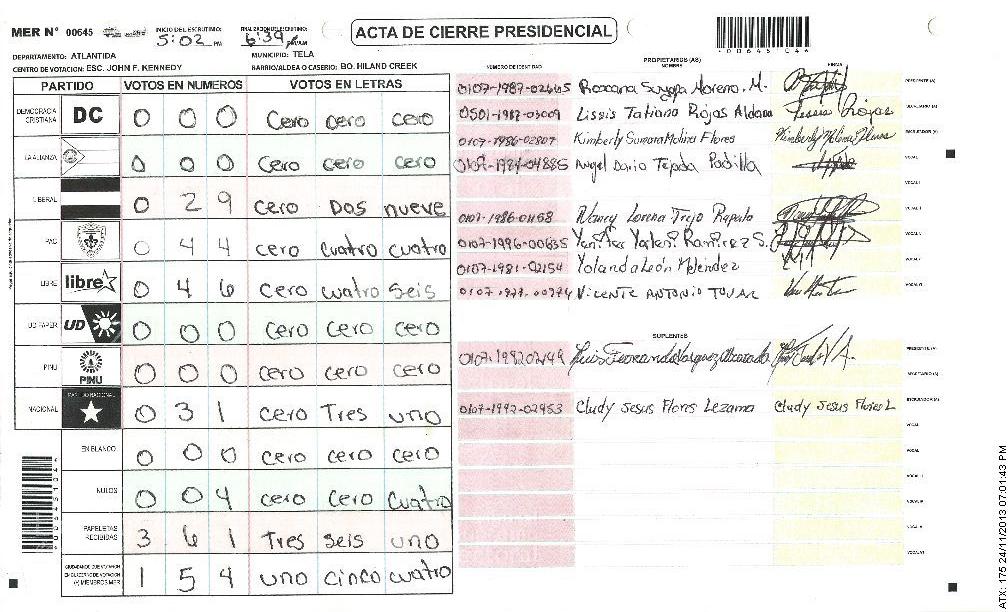 MER N° 00645
INICIO DEL ESCRUTINIO: 5:02 PM
FINALIZACION DEL ESCRUTINIO: 6:39 PM/AM
ACTA DE CIERRE PRESIDENCIAL
DEPARTAMENTO: ATLANTIDA
MUNICIPIO: TELA
CENTRO DE VOTACION: ESC. JOHN F. KENNEDY
BARRIO/ALDEA O CASERIO: BO. HILAND CREEK
PARTIDO VOTOS EN NUMEROS VOTOS EN LETRAS
DEMOCRACIA CRISTIANA DC 0 0 0 cero cero cero
LA ALIANZA 0 0 0 cero cero cero
LIBERAL 0 2 9 cero Dos nueve
PAC 0 4 4 cero cuatro cuatro
LIBRE libre 0 4 6 cero cuatro seis
UD FAPER UD 0 0 0 cero cero cero
PINU PINU 0 0 0 cero cero cero
NACIONAL 0 3 1 cero Tres uno
EN BLANCO 0 0 0 cero cero cero
NULOS 0 0 4 cero cero cuatro
PAPELETAS RECIBIDAS 3 6 1 Tres seis uno
1 5 4 uno cinco cuatro
NUMERO DE IDENTIDAD
PROPIETARIOS (AS)
NOMBRE
FIRMA
Roxana Suyapa Moreno. M. PRESIDENTE (A)
0501-1987-03009 Lissis Tatiana Rojas Aldana
0107-1986-02807 Kimberly Sumara Molina Flores
0107-1984-04885 Angel Dario Tejada Padilla
0107-1986-01158 Nancy Lorena Trejo
0107-1996-00635 Ramirez S.
0107-1981-02154 Yolanda León Melendez
VICENTE ANTONIO TOVAR
SUPLENTES
Luis Fernando Vasquez
0107-1992-02953 Cludy Jesus Flores Lezama Cludy Jesus Flores L
ATX: 175 24/11/2013 07:01:43 PM